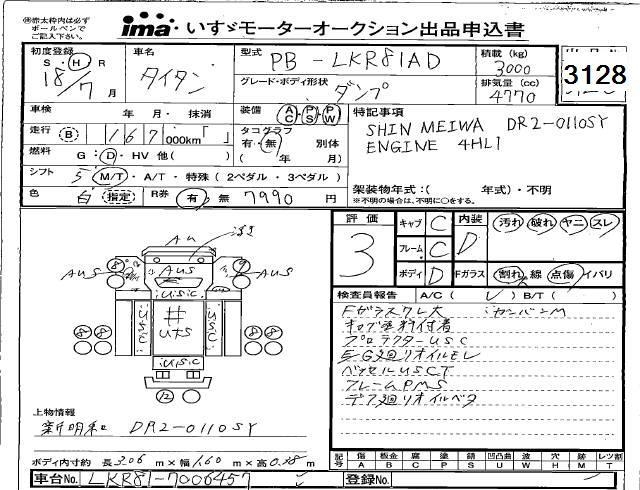 ㊟赤太枠内は必ず
ボールペンで
ご記入下さい。
ima いすゞモーターオークション出品申込書
初度登録 S・H・R 18/7月
車名 タイタン
型式 PB-LKR81AD
積載(kg) 3000
3128
グレード・ボディ形状 ダンプ
排気量(cc) 4770
車検 年・月・抹消
装備 AC・PS・PW
特記事項
SHIN MEIWA DR2-0110SY
ENGINE 4HL1
走行 B 167 000km「 」
タコグラフ 有・無 別体
( 年 月)
燃料 G・D・HV 他( )
シフト 5 M/T・A/T・特殊(2ペダル・3ペダル)
架装物年式:( 年式)・不明
※不明の場合は、不明に○をする。
色 白 指定 R券 有・無 7990円
評価 3
キャブ C 内装 D 汚れ 破れ ヤニ スレ
フレーム C
ボディ D Fガラス 割れ・線 点傷・イバリ
検査員報告 A/C( ) B/T( )
Fガラスワレ大
キャブ塗料付着
プロテクターUSC
E/G廻リオイルモレ
ベッセルUSCT
フレームPMS
デフ廻リオイルベタ
AU
AUS AUS AUS
USC
USC # USC
UAS
USC
8 9
8 8 8 8
12
上物情報
新明和 DR2-0110SY
ボディ内寸約 長3.06m×幅1.60m×高0.38m
記号 傷A 板金B 腐C 塗P 錆S 凹凸曲U 波W 穴H 跡M レツ割T
車台No. LKR81-7006457
登録No.